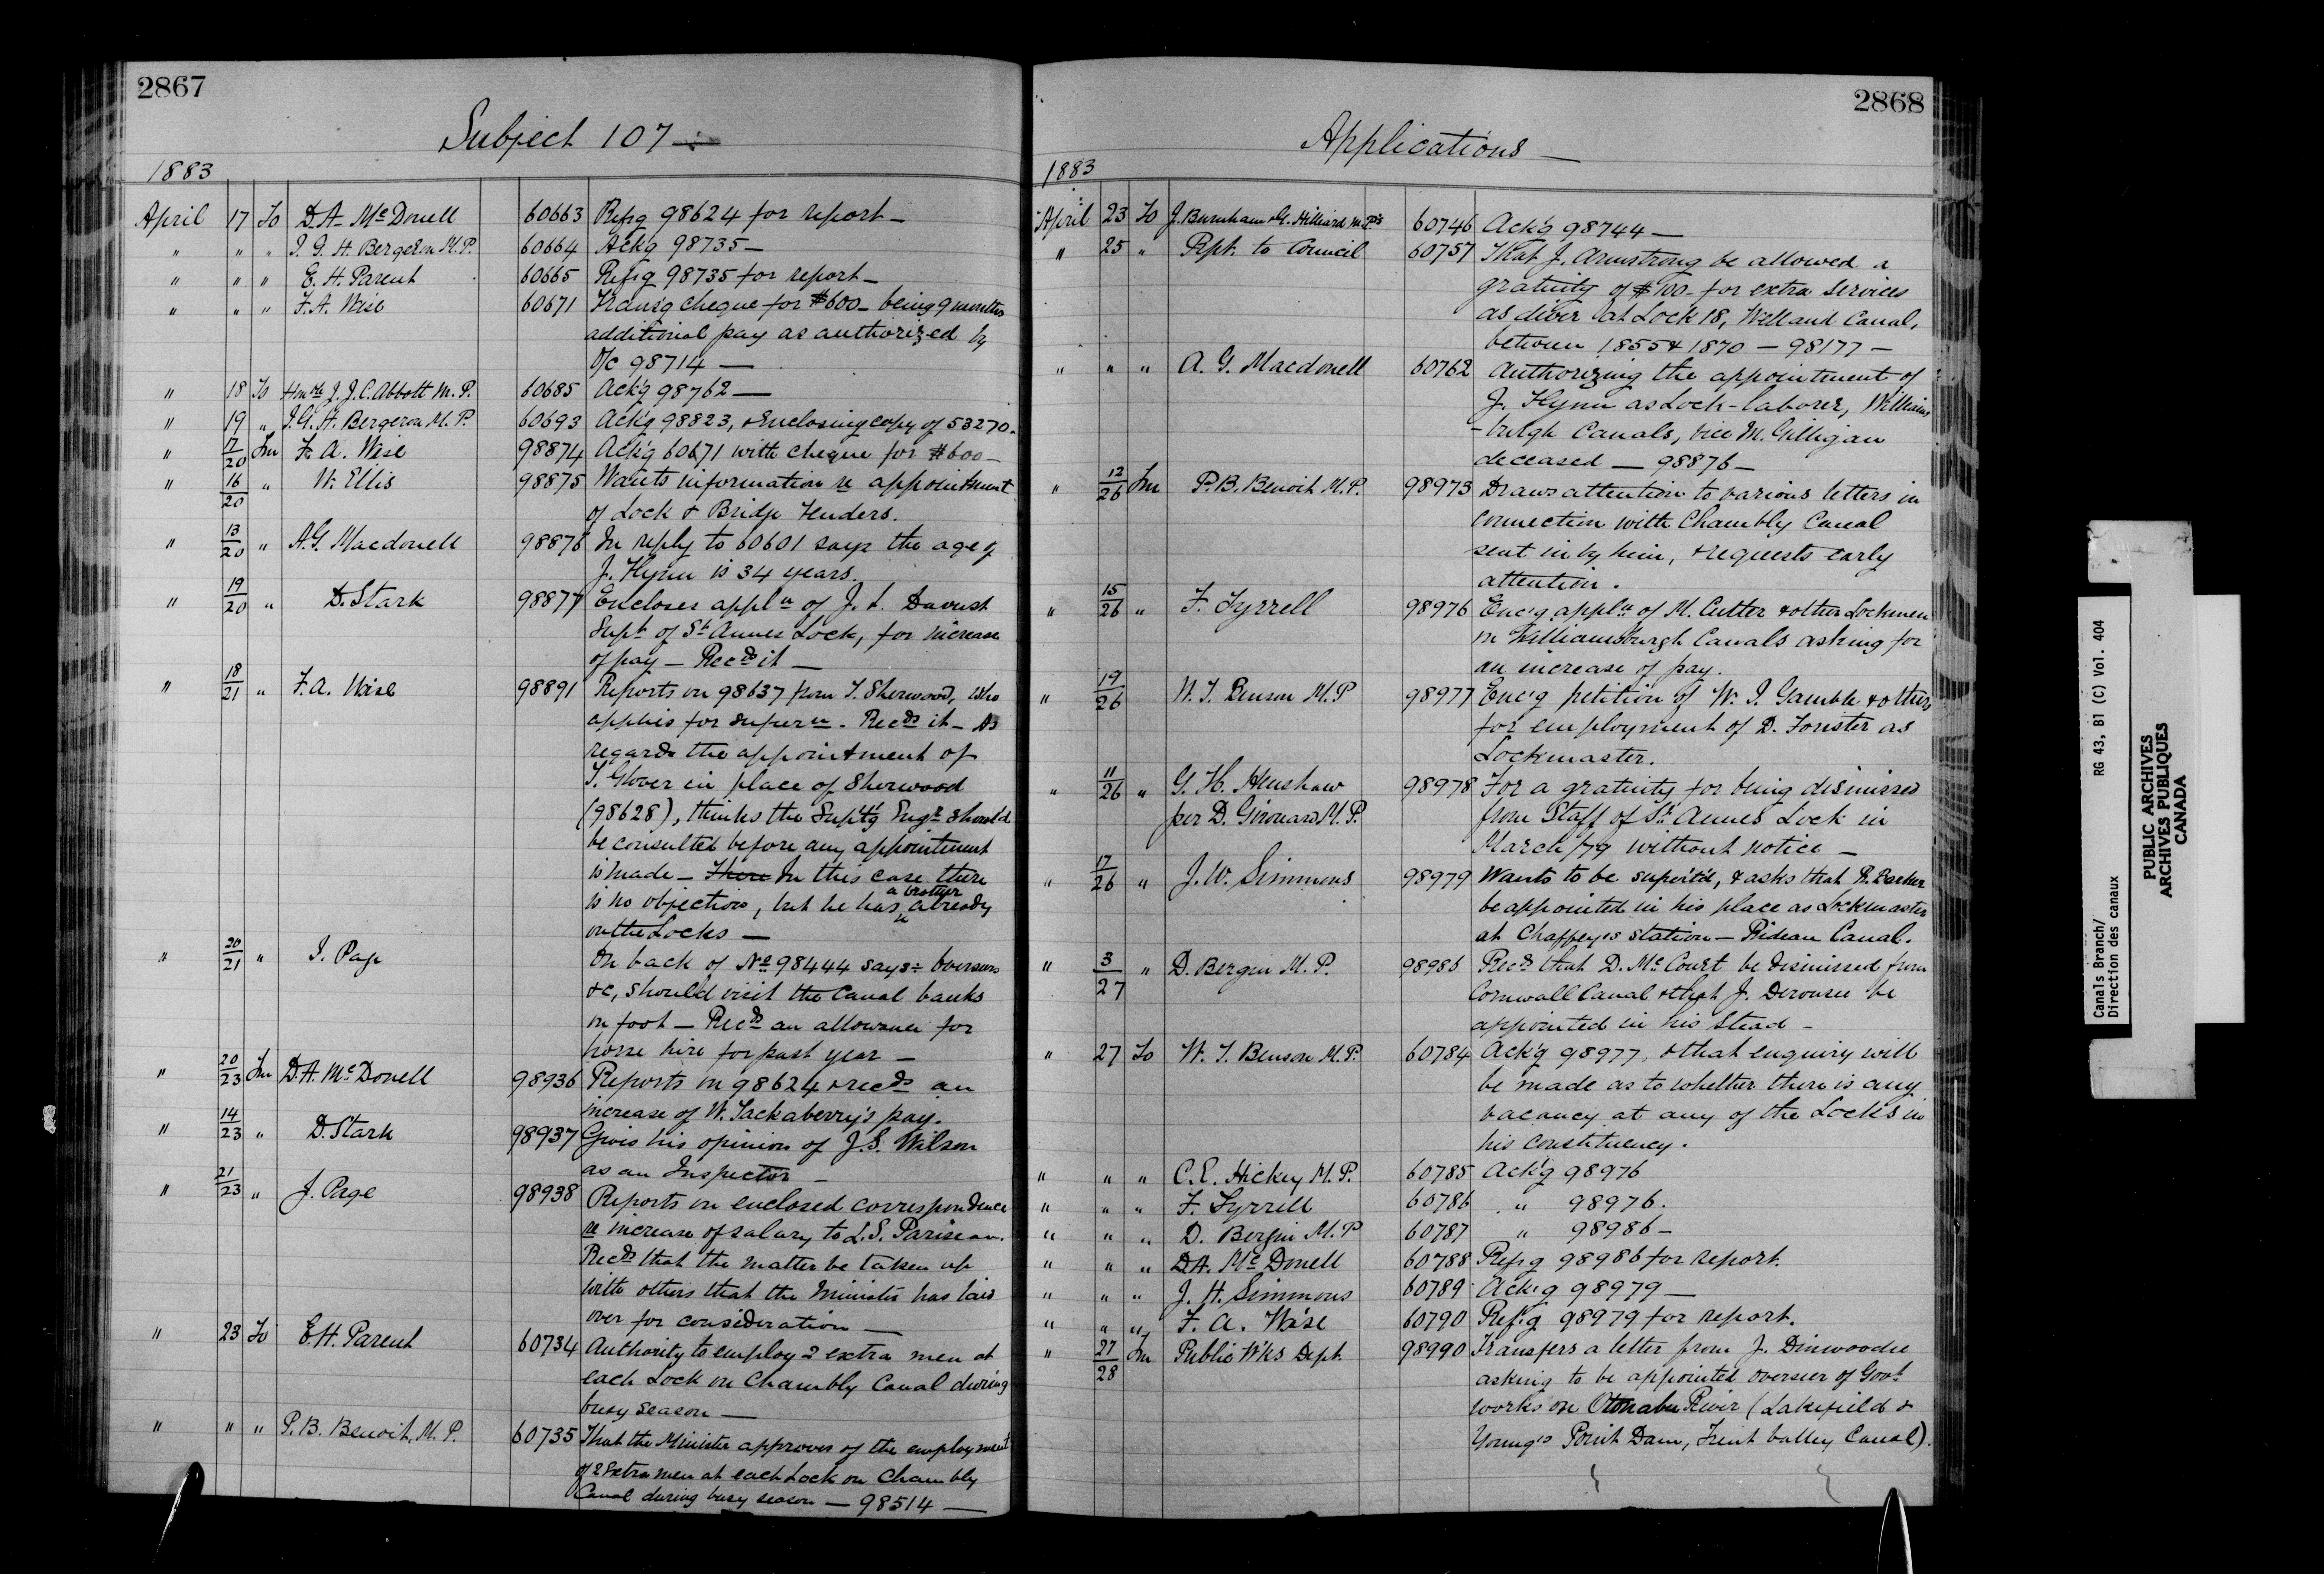 2867
Subject 107 —
1883
April 17 To D. A. McDonell 60663 Refrg 98624 for report —
" " " J. G. H. Bergeron M.P. 60664 Ack'g 98735 —
" " " E. H. Parent 60665 Refrg 98735 for report —
" " " F. A. Wise 60671 Trans'g cheque for $600 — being 9 months
additional pay as authorized by
O/C 98714 —
" 18 To Honble J. J. C. Abbott M.P. 60685 Ack'g 98762 —
" 19 " J. G. H. Bergeron M.P. 60693 Ack'g 98823, & Enclosing copy of 53270.
" 17/20 Fm F. A. Wise 98874 Ack'g 60671 with cheque for $600 —
" 16/20 " W. Ellis 98875 Wants information re appointment
of Lock & Bridge Tenders.
" 13/20 " A. G. Macdonell 98876 In reply to 60601 says the age of
J. Flynn is 34 years.
" 19/20 " D. Stark 98877 Encloses appln of J. L. Davust
Supt of St Annes Lock, for increase
of pay — Recds it —
" 18/21 " F. A. Wise 98891 Reports on 98637 from T. Sherwood, who
applies for superan. Recds it — As
regards the appointment of
T. Glover in place of Sherwood
(98628), thinks the Supt'g Engr should
be consulted before any appointment
is made — There In this case there
is no objection, but he has a brother already
on the Locks —
" 20/21 " J. Page On back of No 98444 says: Overseers
&c, should visit the Canal banks
on foot — Recds an allowance for
horse hire for past year —
" 20/23 Fm D. A. McDonell 98936 Reports on 98624 & recds an
increase of W. Tackaberry's pay.
" 14/23 " D. Stark 98937 Gives his opinion of J. S. Wilson
as an Inspector —
" 21/23 " J. Page 98938 Reports on enclosed correspondence
re increase of salary to L. S. Pariseau.
Recds that the matter be taken up
with others that the Minister has laid
over for consideration —
" 23 To E. H. Parent 60734 Authority to employ 2 extra men at
each Lock on Chambly Canal during
busy season —
" " " P. B. Benoit, M.P. 60735 That the Minister approves of the employment
of 2 extra men at each Lock on Chambly
Canal during busy season — 98514 —
2868
Applications —
1883
April 23 To J. Burnham & G. Hilliard M.P's 60746 Ack'g 98744 —
" 25 " Rpt. to Council 60757 That J. Armstrong be allowed a
gratuity of $100 — for extra services
as diver at Lock 18, Welland Canal,
between 1855 & 1870 — 98177 —
" " " A. G. Macdonell 60762 Authorizing the appointment of
J. Flynn as Lock-laborer, Williams
-burgh Canals, vice M. Gilligan
deceased — 98876 —
" 12/26 Fm P. B. Benoit M.P. 98973 Draws attention to various letters in
connection with Chambly Canal
sent in by him, & requests early
attention.
" 15/26 " F. Tyrrell 98976 Enc'g appln of M. Cutter & other Lockmen
on Williamsburgh Canals asking for
an increase of pay.
" 19/26 W. T. Benson M.P 98977 Enc'g petition of W. J. Gamble & others
for employment of D. Forister as
Lockmaster.
" 11/26 " G. H. Henshaw 98978 For a gratuity for being dismissed
per D. Girouard M.P. from Staff of St Annes Lock in
March/79 without notice —
" 17/26 " J. W. Simmons 98979 Wants to be super'td, & asks that R. Barker
be appointed in his place as Lockmaster
at Chaffey's station — Rideau Canal.
" 3/27 " D. Bergin M.P. 98986 Recds that D. McCourt be dismissed from
Cornwall Canal & that J. Derousie be
appointed in his Stead —
" 27 To W. T. Benson M.P. 60784 Ack'g 98977, & that enquiry will
be made as to whether there is any
vacancy at any of the Locks in
his constituency.
" " " C. E. Hickey M.P. 60785 Ack'g 98976
" " " F. Tyrrell 60786 " 98976.
" " " D. Bergin M.P 60787 " 98986 —
" " " D. A. McDonell 60788 Refrg 98986 for report.
" " " J. H. Simmons 60789 Ack'g 98979 —
" " " F. A. Wise 60790 Refrg 98979 for report.
" 27/28 Fm Public W'ks Dept. 98990 Transfers a letter from J. Dinwoodie
asking to be appointed overseer of Govt
works on Otonabee River (Lakefield &
Young's Point Dam, Trent Valley Canal).
Canals Branch/ RG 43, B1 (C) Vol. 404
Direction des canaux
PUBLIC ARCHIVES
ARCHIVES PUBLIQUES
CANADA